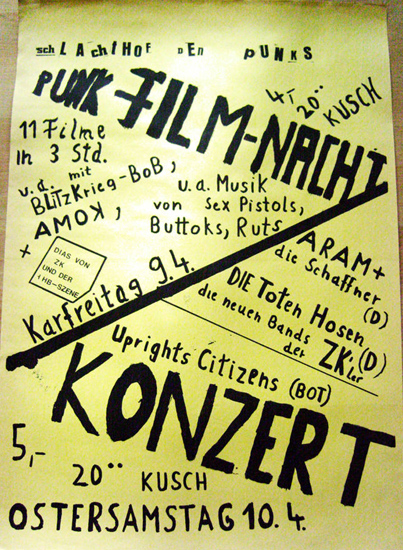 schLAchtHOF DEN PUNKS
PUNK-FILM-NACHT
4,- 20°° KUSCH
11 Filme
IN 3 Std.
u.a. mit
BLitzKrieg-BoB,
AMOK,
u.a. Musik
von Sex Pistols,
Buttoks, Ruts
+
DIAS VON
ZK
UND DER
HB-SZENE
Karfreitag 9.4.
ARAM +
die Schaffner
(D)
DIE Toten Hosen (D)
die neuen Bands
der ZK'ler
Uprights Citizens (BOT)
KONZERT
5,-
20°° KUSCH
OSTERSAMSTAG 10.4.